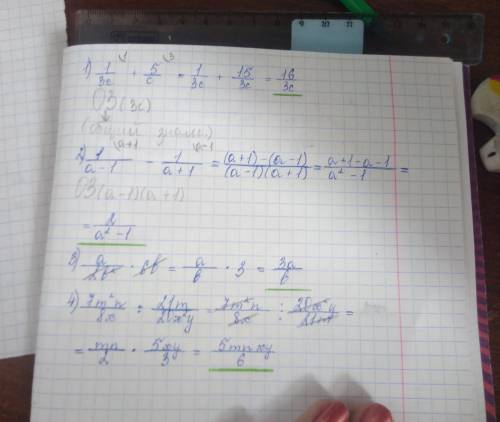 1) 1/3c + 5/c = 1/3c + 15/3c = 16/3c
ОЗ (3c)
(общий знам.)
2) 1/(a-1) - 1/(a+1) = ((a+1)-(a-1))/((a-1)(a+1)) = (a+1-a-1)/(a²-1) =
ОЗ (a-1)(a+1)
= 2/(a²-1)
3) a/2b² · 6b = a/b · 3 = 3a/b
4) 7m²n/8x : 21m/20x²y = 7m²n/8x : 20x²y/21m =
= mn/2 · 5xy/3 = 5mnxy/6